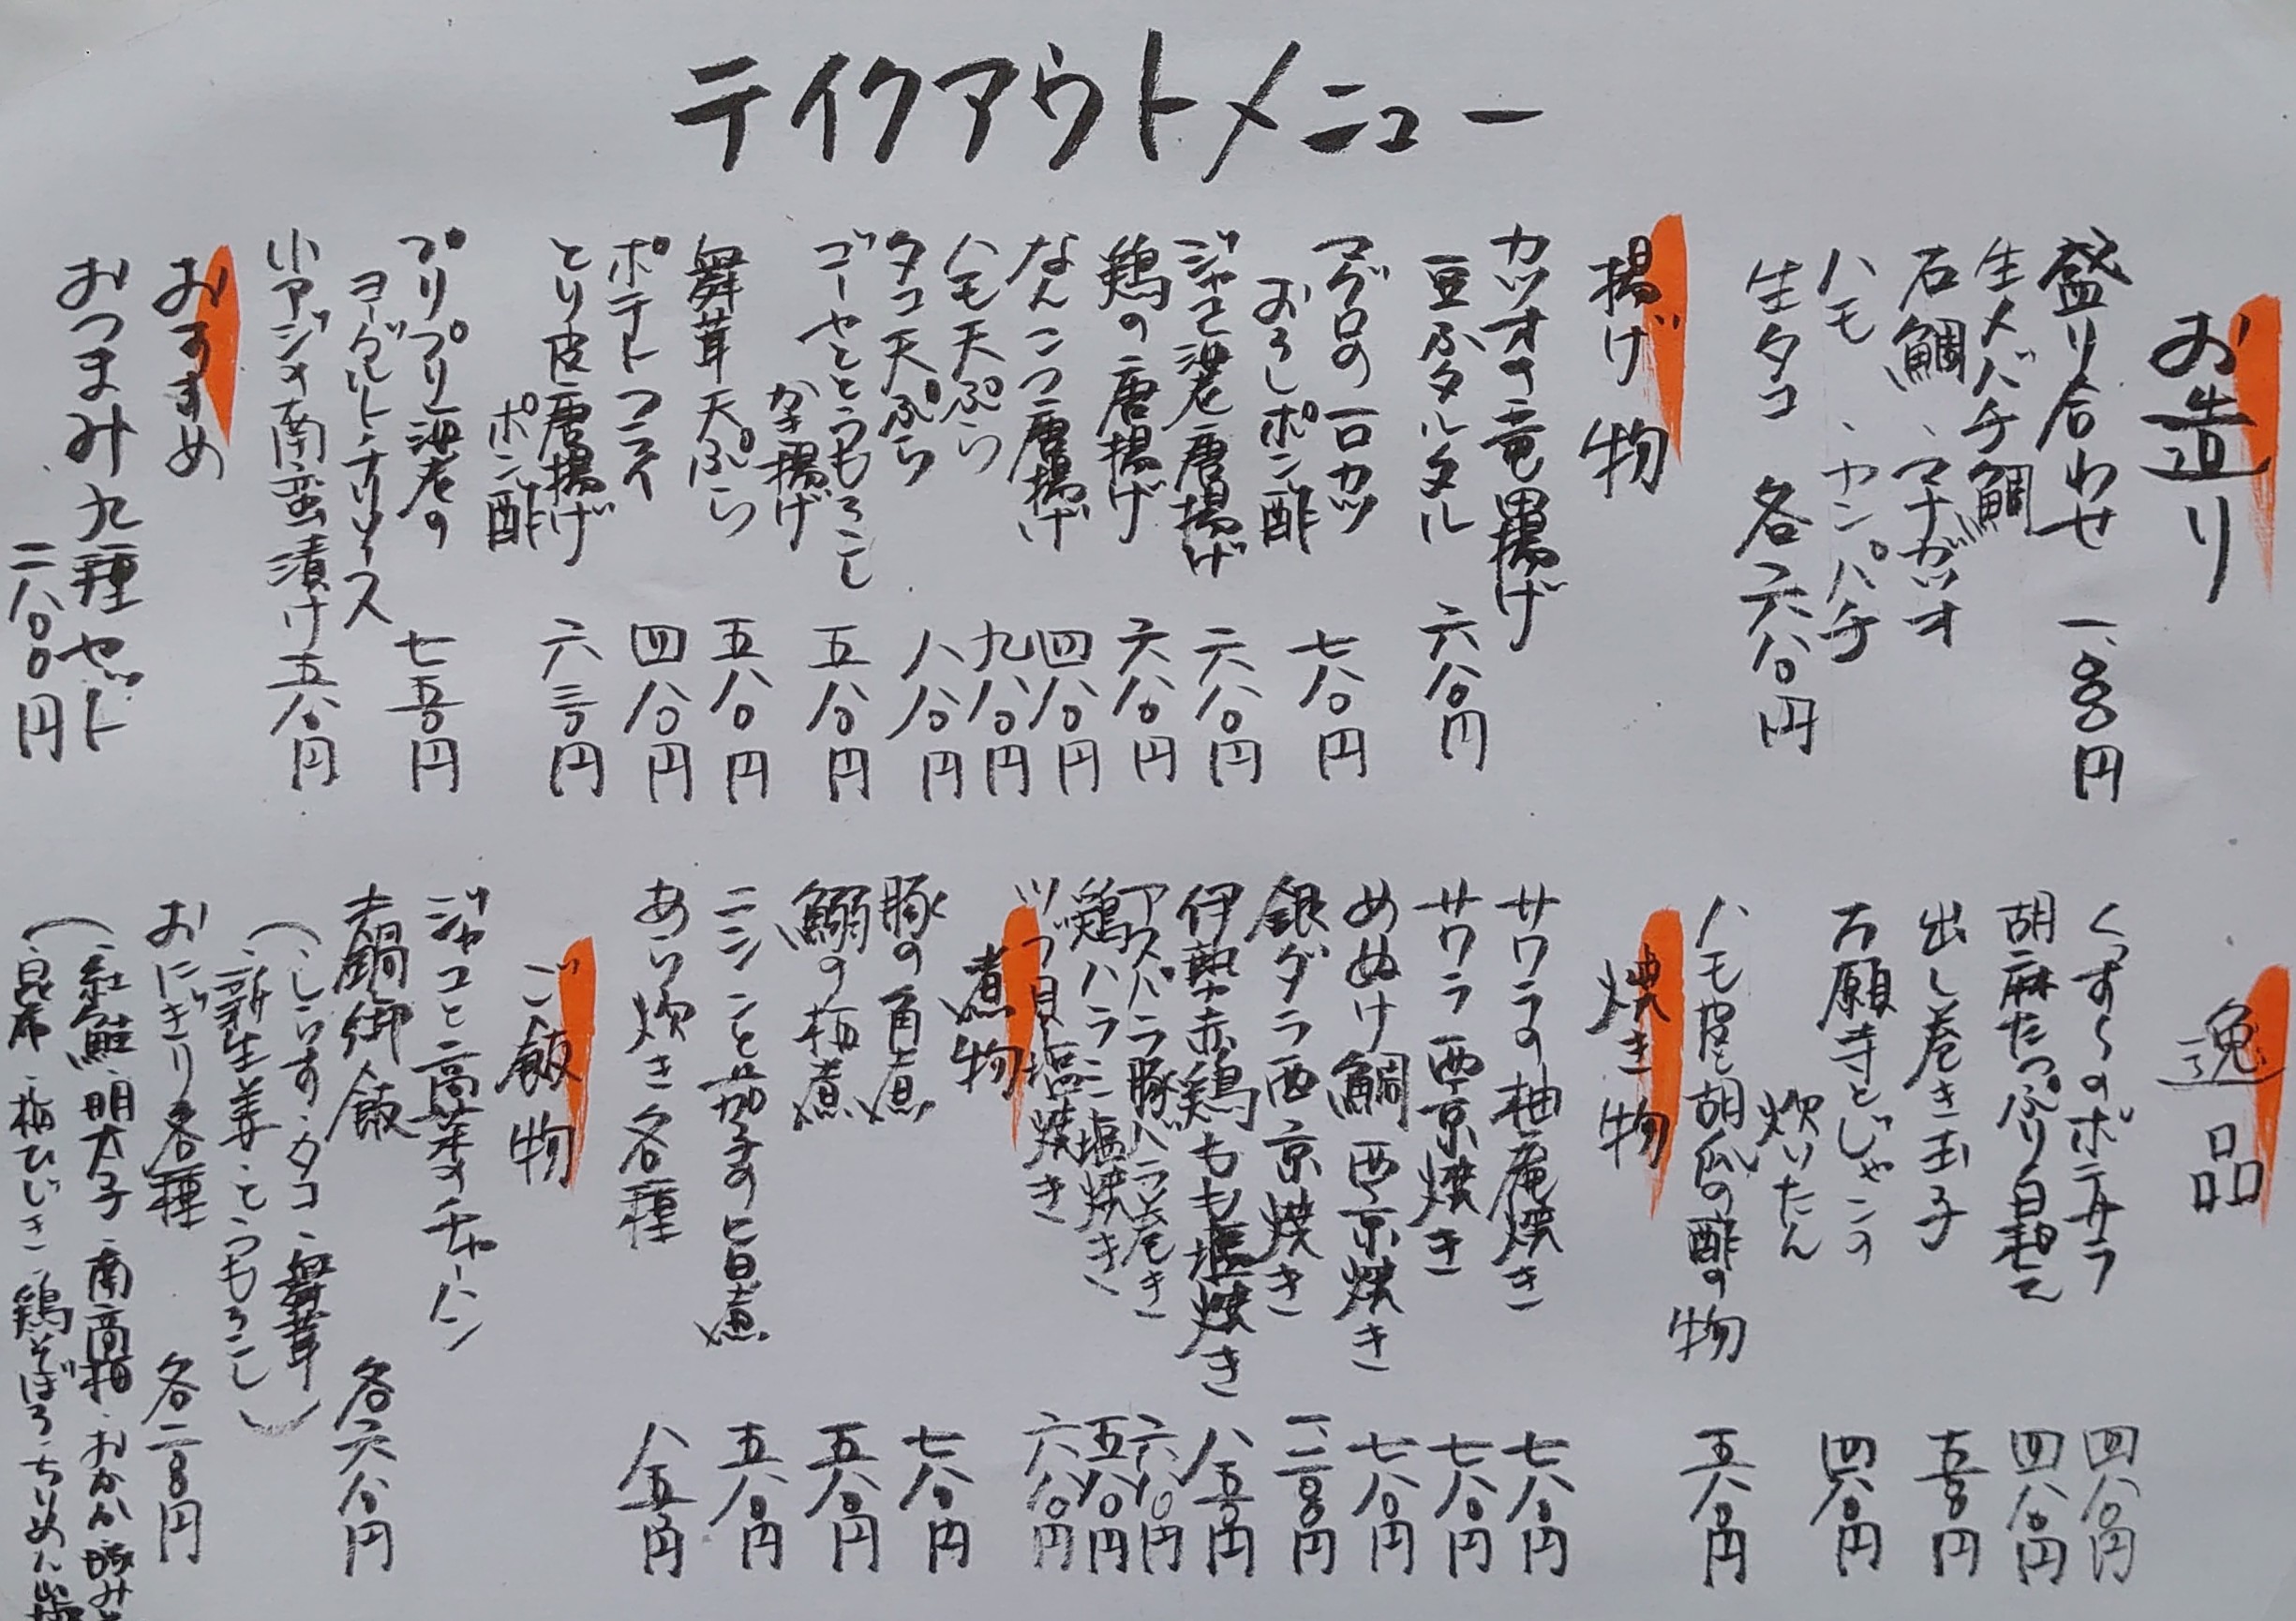 テイクアウトメニュー
お造り
盛り合わせ 一、八〇〇円
生メバチ鯛
石鯛、マナガツオ
ハモ、カンパチ
生タコ 各六八〇円
揚げ物
カツオの竜田揚げ
豆ふタルタル 六八〇円
マグロの一口カツ
おろしポン酢 七八〇円
ジャコ海老唐揚げ 六八〇円
鶏の唐揚げ 六八〇円
なんこつ唐揚げ 四八〇円
ハモ天ぷら 九八〇円
タコ天ぷら 八八〇円
ゴーヤととうもろこし
かき揚げ 五八〇円
舞茸天ぷら 五八〇円
ポテトフライ 四八〇円
とり皮唐揚げ
ポン酢 六三〇円
プリプリ海老の
ヨーグルトチリソース 七五〇円
小アジの南蛮漬け 五八〇円
おすすめ
おつまみ九種セット
二八〇〇円
逸品
くずし のポテサラ 四八〇円
胡麻たっぷり白和え 四八〇円
出し巻き玉子 五三〇円
万願寺とじゃこの
炊いたん 四八〇円
ハモ皮と胡瓜の酢の物 五八〇円
焼き物
サワラの柚庵焼き 七八〇円
サワラ西京焼き 七八〇円
めぬけ鯛西京焼き 七八〇円
銀ダラ西京焼き 一二〇〇円
伊勢赤鶏もも塩焼き 八五〇円
アスパラ豚バラ巻き 六八〇円
鶏ハラミ塩焼き 五八〇円
ツブ貝塩焼き 六八〇円
煮物
豚の角煮 七八〇円
鰯の梅煮 五八〇円
ニシンと茄子の旨煮 五八〇円
あら炊き各種 八五〇円
ご飯物
ジャコと高菜のチャーハン
土鍋御飯 各六八〇円
(しらす・タコ・舞茸
・新生姜・とうもろこし)
おにぎり各種 各二三〇円
(紅鮭・明太子・南高梅・おかか・豚み
・昆布・梅ひじき・鶏そぼろ・ちりめん山椒